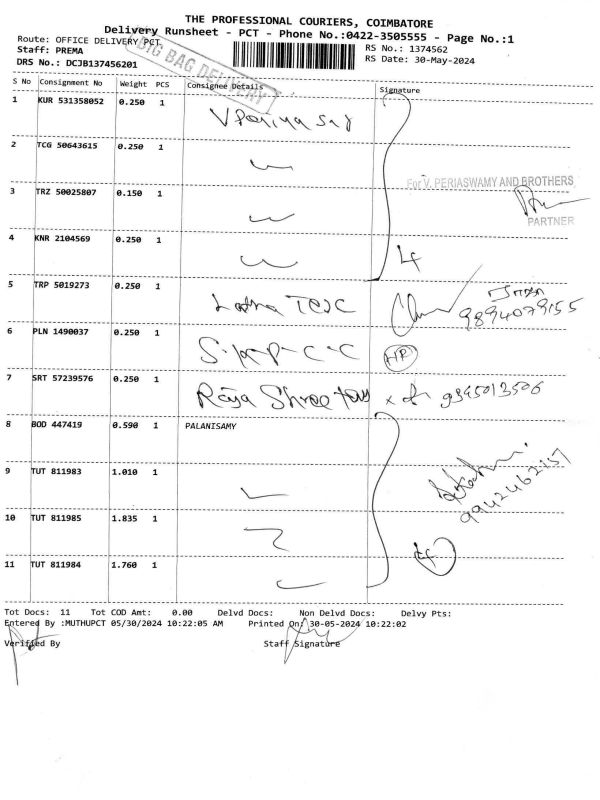 THE PROFESSIONAL COURIERS, COIMBATORE
Delivery Runsheet - PCT - Phone No.:0422-3505555 - Page No.:1
Route: OFFICE DELIVERY PCT
RS No.: 1374562
Staff: PREMA
RS Date: 30-May-2024
DRS No.: DCJB137456201
BIG BAG DELIVERY
S No Consignment No Weight PCS Consignee Details Signature
1 KUR 531358052 0.250 1
2 TCG 50643615 0.250 1
For V. PERIASWAMY AND BROTHERS
3 TRZ 50025807 0.150 1
PARTNER
4 KNR 2104569 0.250 1 4
5 TRP 5019273 0.250 1
9894079155
6 PLN 1490037 0.250 1
7 SRT 57239576 0.250 1 Raja Shree 9345013506
8 BOD 447419 0.590 1 PALANISAMY
9 TUT 811983 1.010 1
9942462157
10 TUT 811985 1.835 1
11 TUT 811984 1.760 1
Tot Docs: 11 Tot COD Amt: 0.00 Delvd Docs: Non Delvd Docs: Delvy Pts:
Entered By :MUTHUPCT 05/30/2024 10:22:05 AM Printed On: 30-05-2024 10:22:02
Verified By Staff Signature